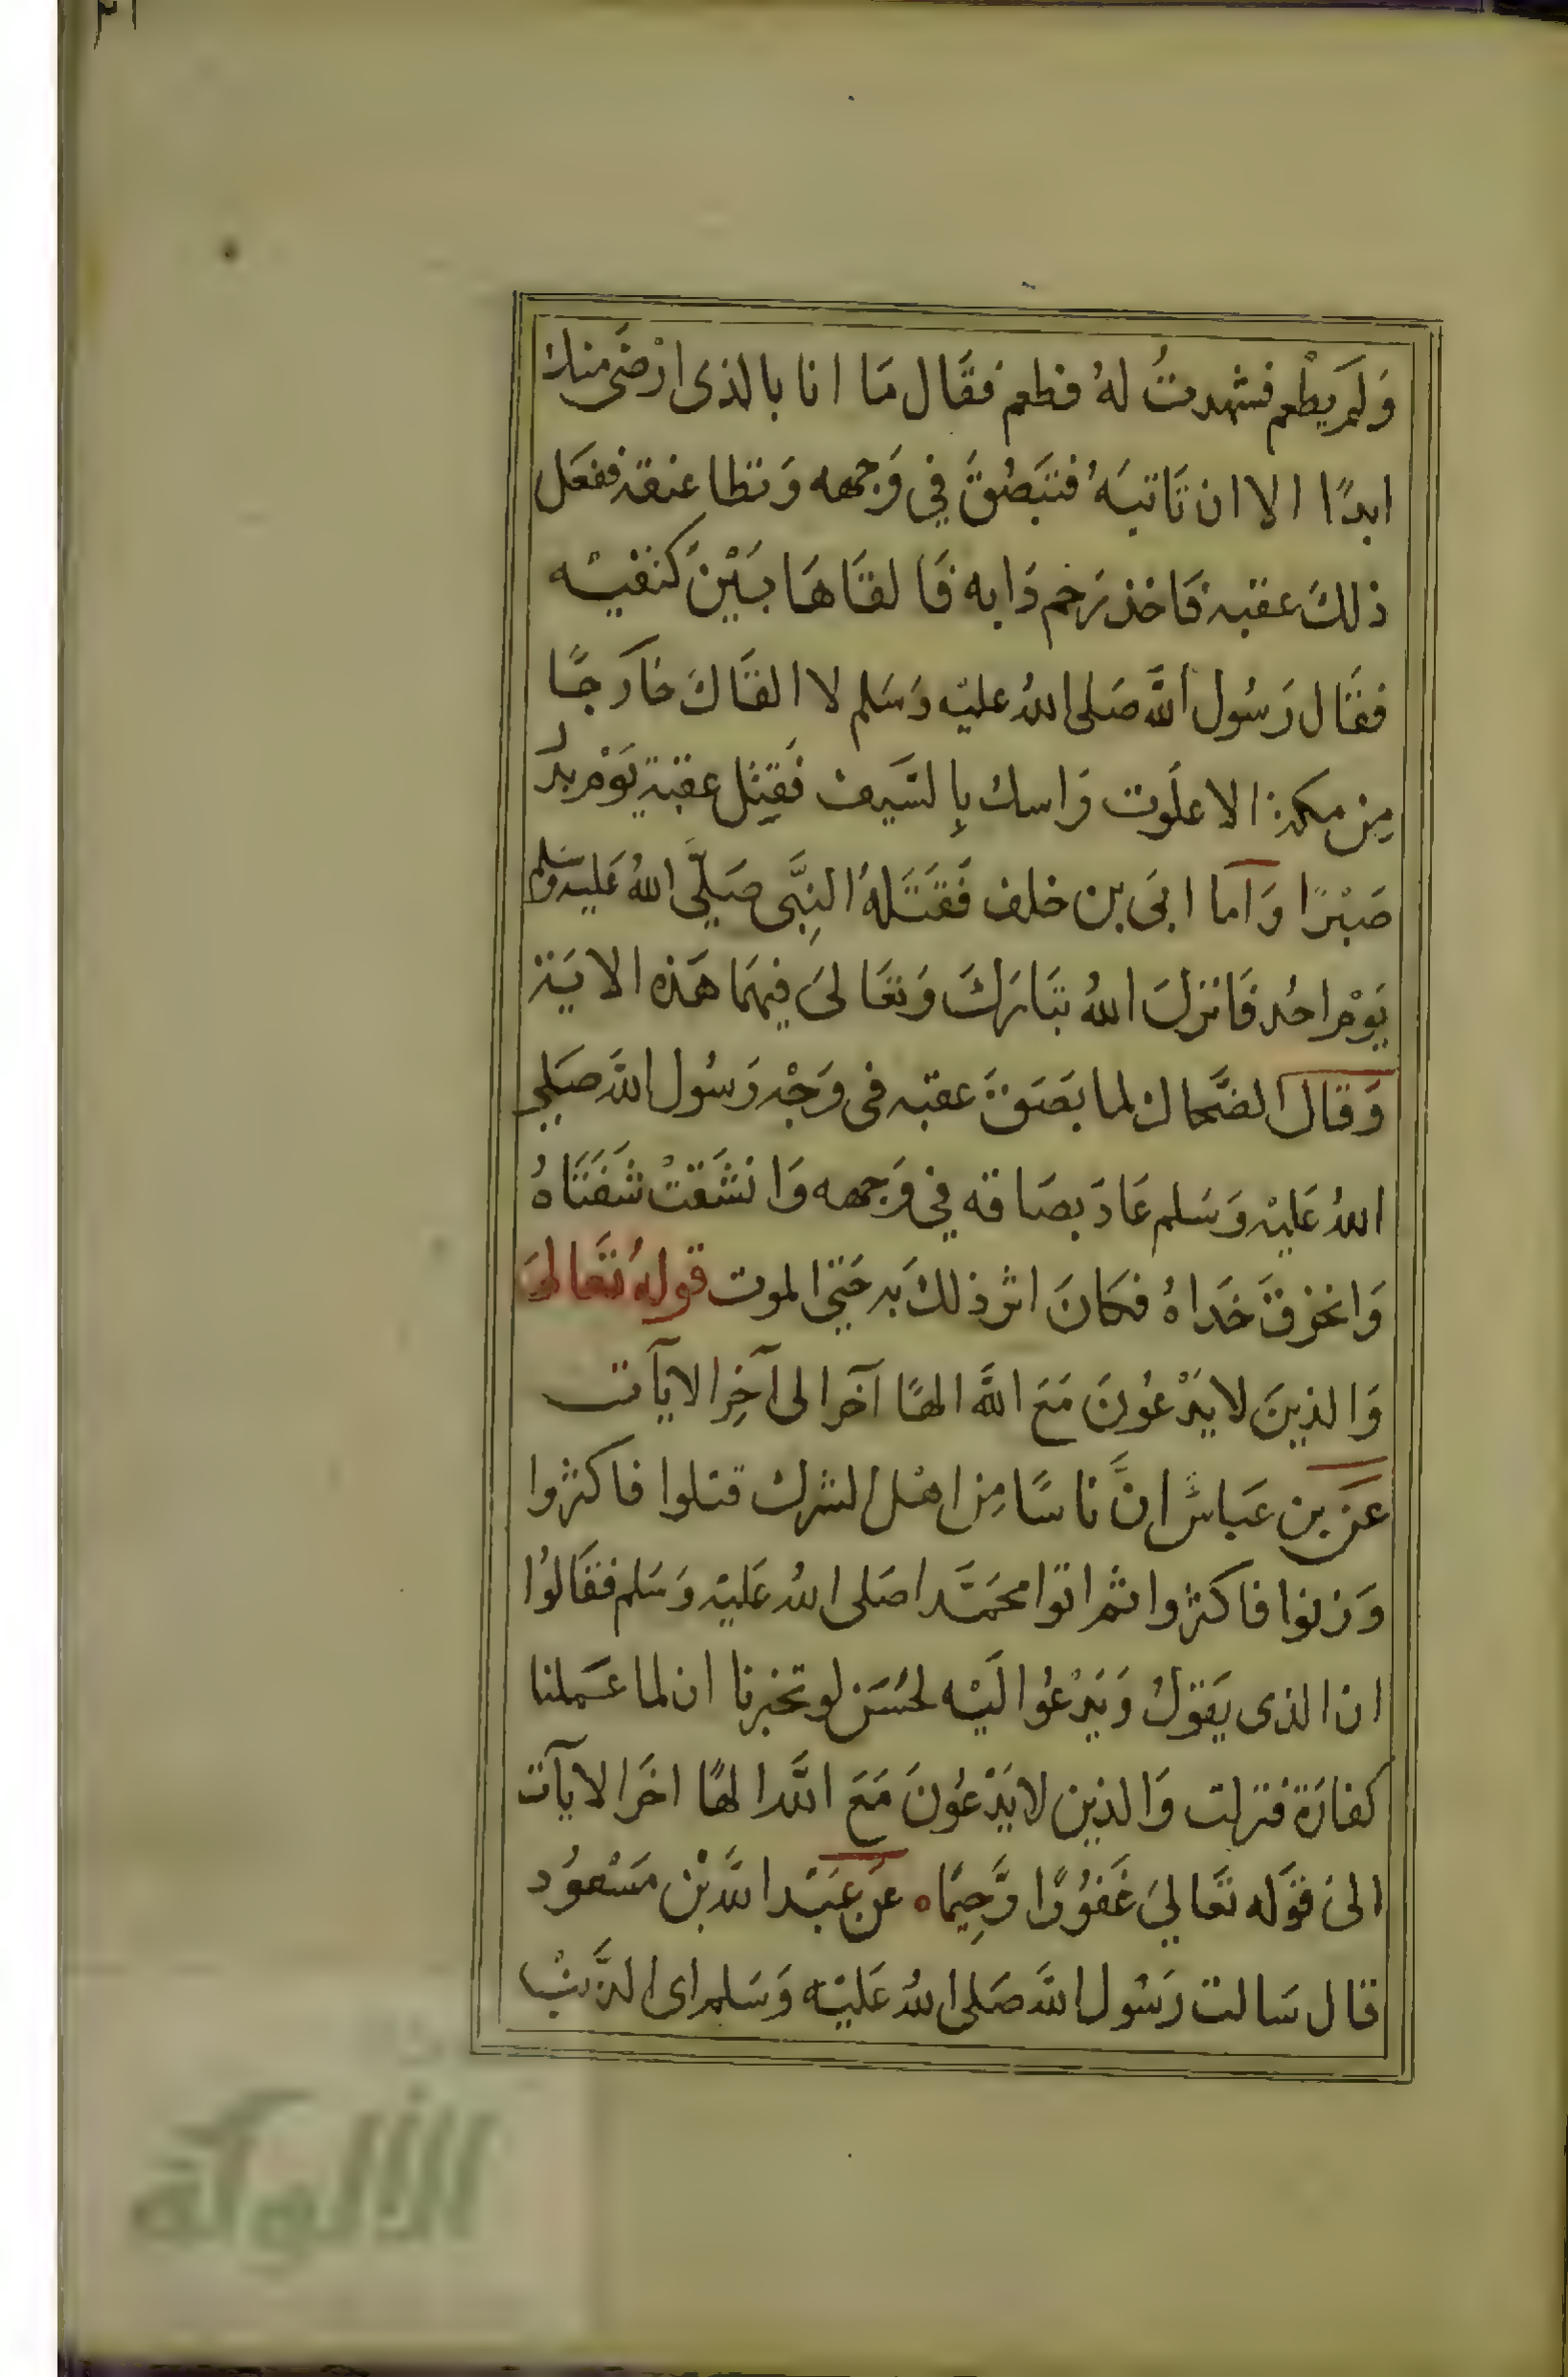 وَلَمَ يطْعم فشهدتُ لهُ فطعم فقَال مَا انا بالذى ارْضَى منك
ابدًا الا ان تَاتيَهُ فتَبَصُقَ فِي وَجهه وَتطا عنقه ففعَل
ذلكَ عقبه فَاخذ رَحم دَابه فَالقَاهَا بَيْنَ كتفيْه
فقَال رَسُول اللَّه صَلى اللهُ عليْه وَسَلم لا القَاكَ خَارجًا
مِن مكة الا علَوت رَاسك بِالسَّيف فَقتِل عقبة يَوْم بدر
صَبْرًا وَآما ابَى بن خلف فَقَتَلهُ النِبَّى صَلَّى اللهُ عَليه وسَلم
يَوْم احُد فَانزلَ اللهُ تبَارَكَ وَتعَالىَ فيهمَا هَذه الايَة
وَقالَ الضَّحاك لما بَصَقَ عقبه فى وَجْه رَسُول اللَّه صَلى
اللهُ عَليْه وَسَلم عَادَ بصَاقه فِي وَجهه وَانشَقتْ شَفَتَاهُ
وَانخرقَ خَدَاهُ فكانَ اثر ذلكَ به حَتىّ الموت قولهُ تعَالىَ
وَالذينَ لا يَدْعُونَ مَعَ اللَّه الهًا آخرا الى آخِر الايآت
عَن بن عَباسٌ انَّ ناسًا مِن اهْل الشرك قتلوا فاكثروا
وَزنوا فاكثروا ثم اتوا محمَّدا صَلى اللهُ عَليْه وَسَلم فقَالوُا
ان الذى يَقولُ وَيَدْعُوا ليْه لحُسَن لو تخبرنا ان لما عَملنا
كفارَة فنزلت وَالذين لا يَدْعُونَ مَعَ اللَّه الهًا اخَر الايآت
الىَ قوَله تعَالىَ غَفوُرًا رَّحِيمًا ه عَن عَبْد اللَّه بْن مَسْعوُد
قال سَالت رَسُول اللَّه صَلى اللهُ عَليْه وَسَلم اى الذَّنبْ
الألوكة